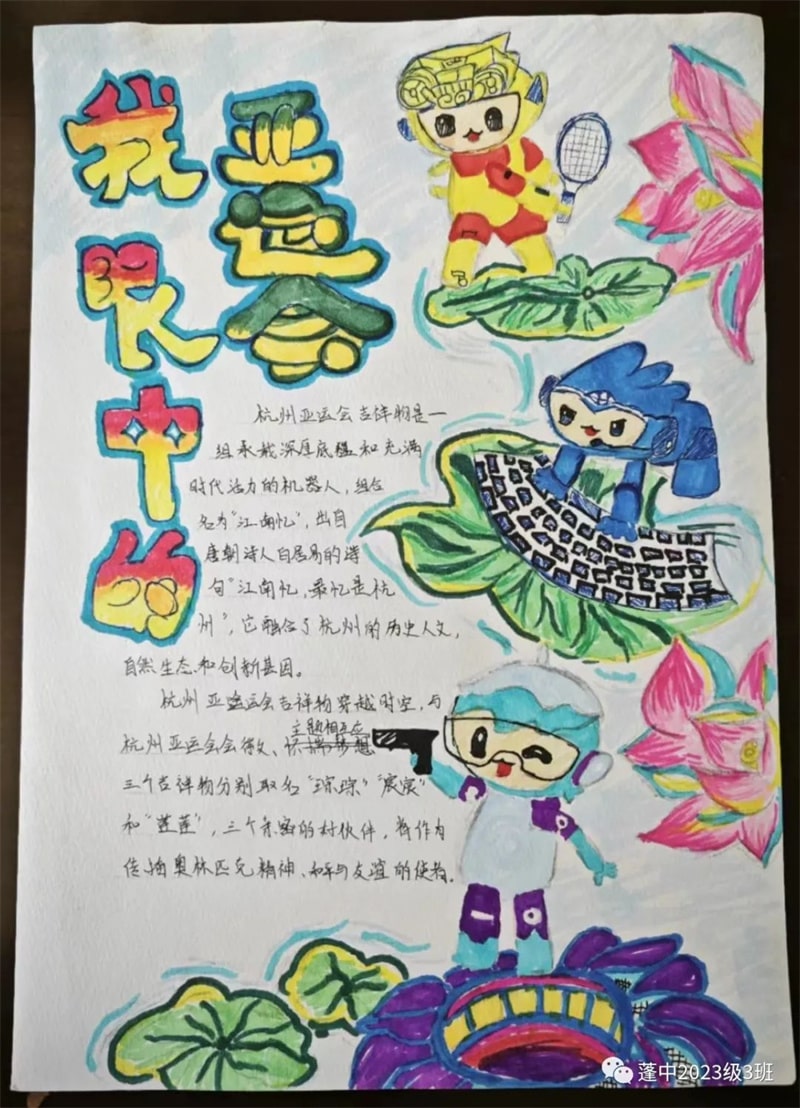 我眼中的
亚运会
杭州亚运会吉祥物是一
组承载深厚底蕴和充满
时代活力的机器人,组合
名为"江南忆",出自
唐朝诗人白居易的诗
句"江南忆,最忆是杭
州",它融合了杭州的历史人文,
自然生态和创新基因。
杭州亚运会吉祥物穿越时空,与
主题相互应
杭州亚运会会徽、
三个吉祥物分别取名"琮琮""宸宸"
和"莲莲",三个亲密的好伙伴,将作为
传播奥林匹克精神、和平与友谊的使者。
蓬中2023级3班